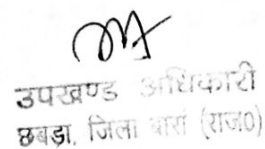 उपखण्ड अधिकारी
छबड़ा, जिला बारां (राज०)